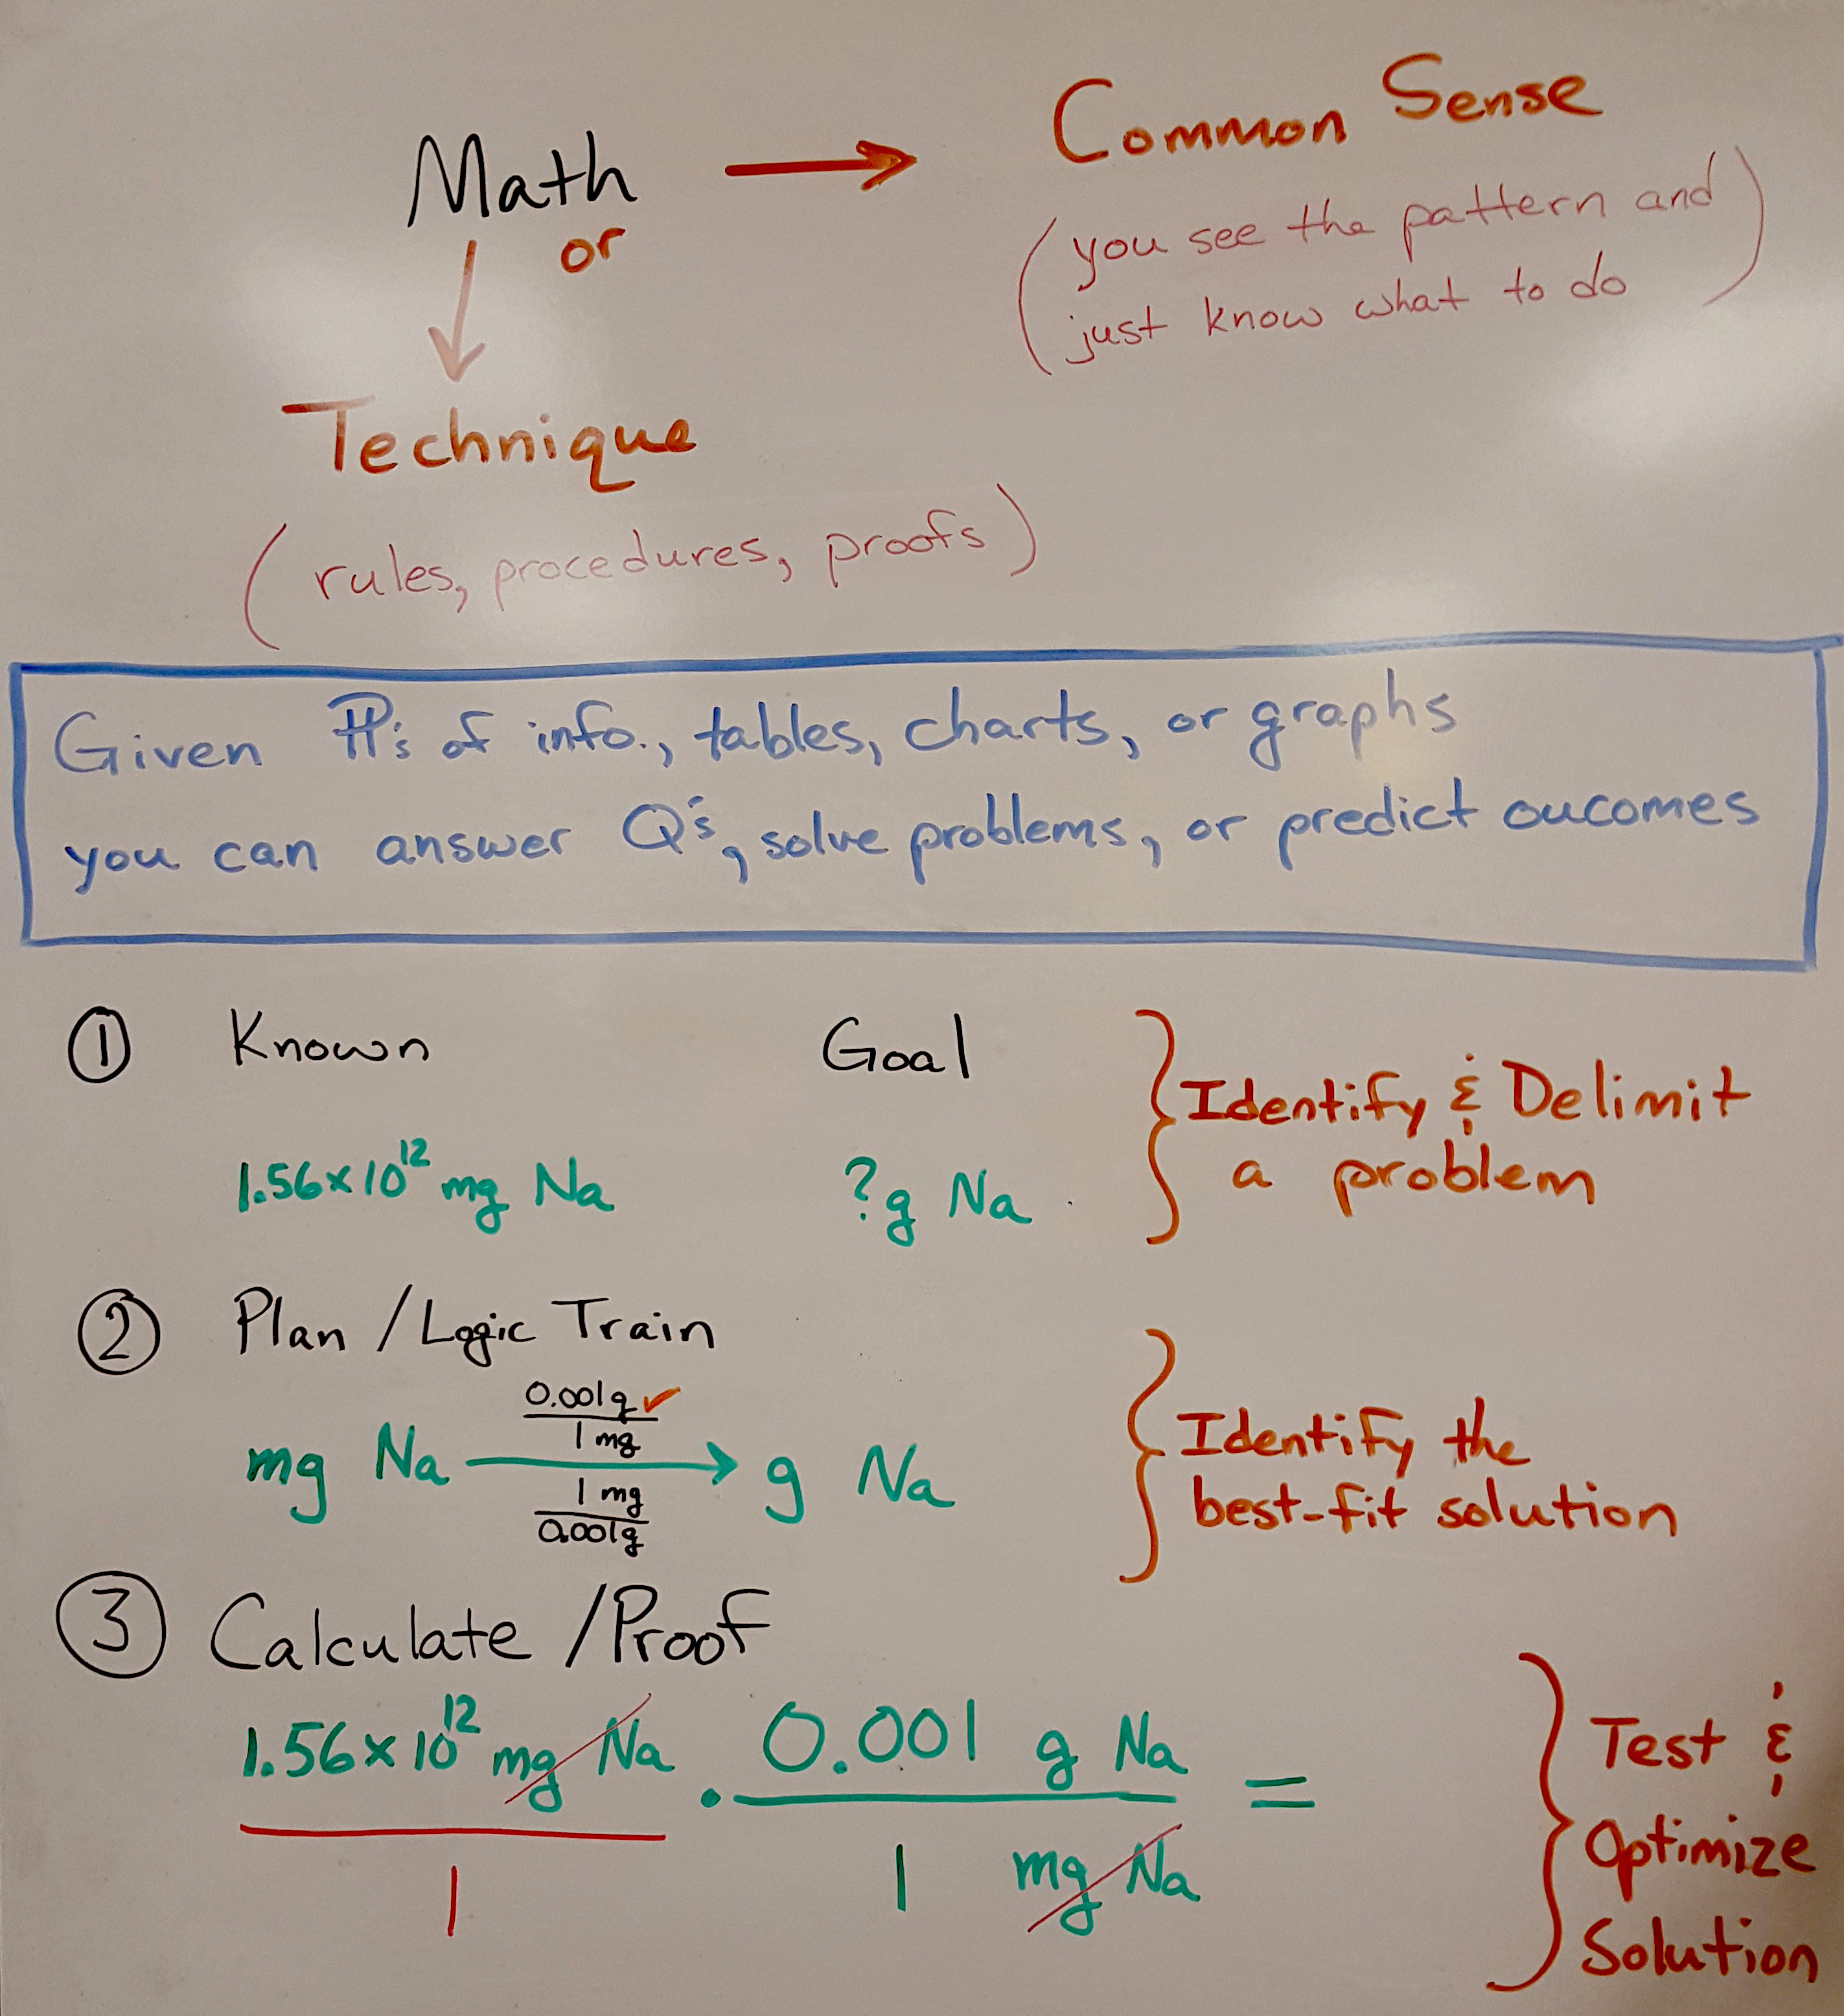 Math → Common Sense
or
(you see the pattern and
just know what to do)
Technique
(rules, procedures, proofs)
Given ¶'s of info., tables, charts, or graphs
you can answer Q's, solve problems, or predict oucomes
① Known Goal
1.56×10¹² mg Na ?g Na
} Identify & Delimit
a problem
② Plan / Logic Train
0.001g ✓
1 mg
mg Na → g Na
1 mg
0.001g
} Identify the
best-fit solution
③ Calculate / Proof
1.56×10¹² mg Na · 0.001 g Na =
1 1 mg Na
} Test &
Optimize
Solution